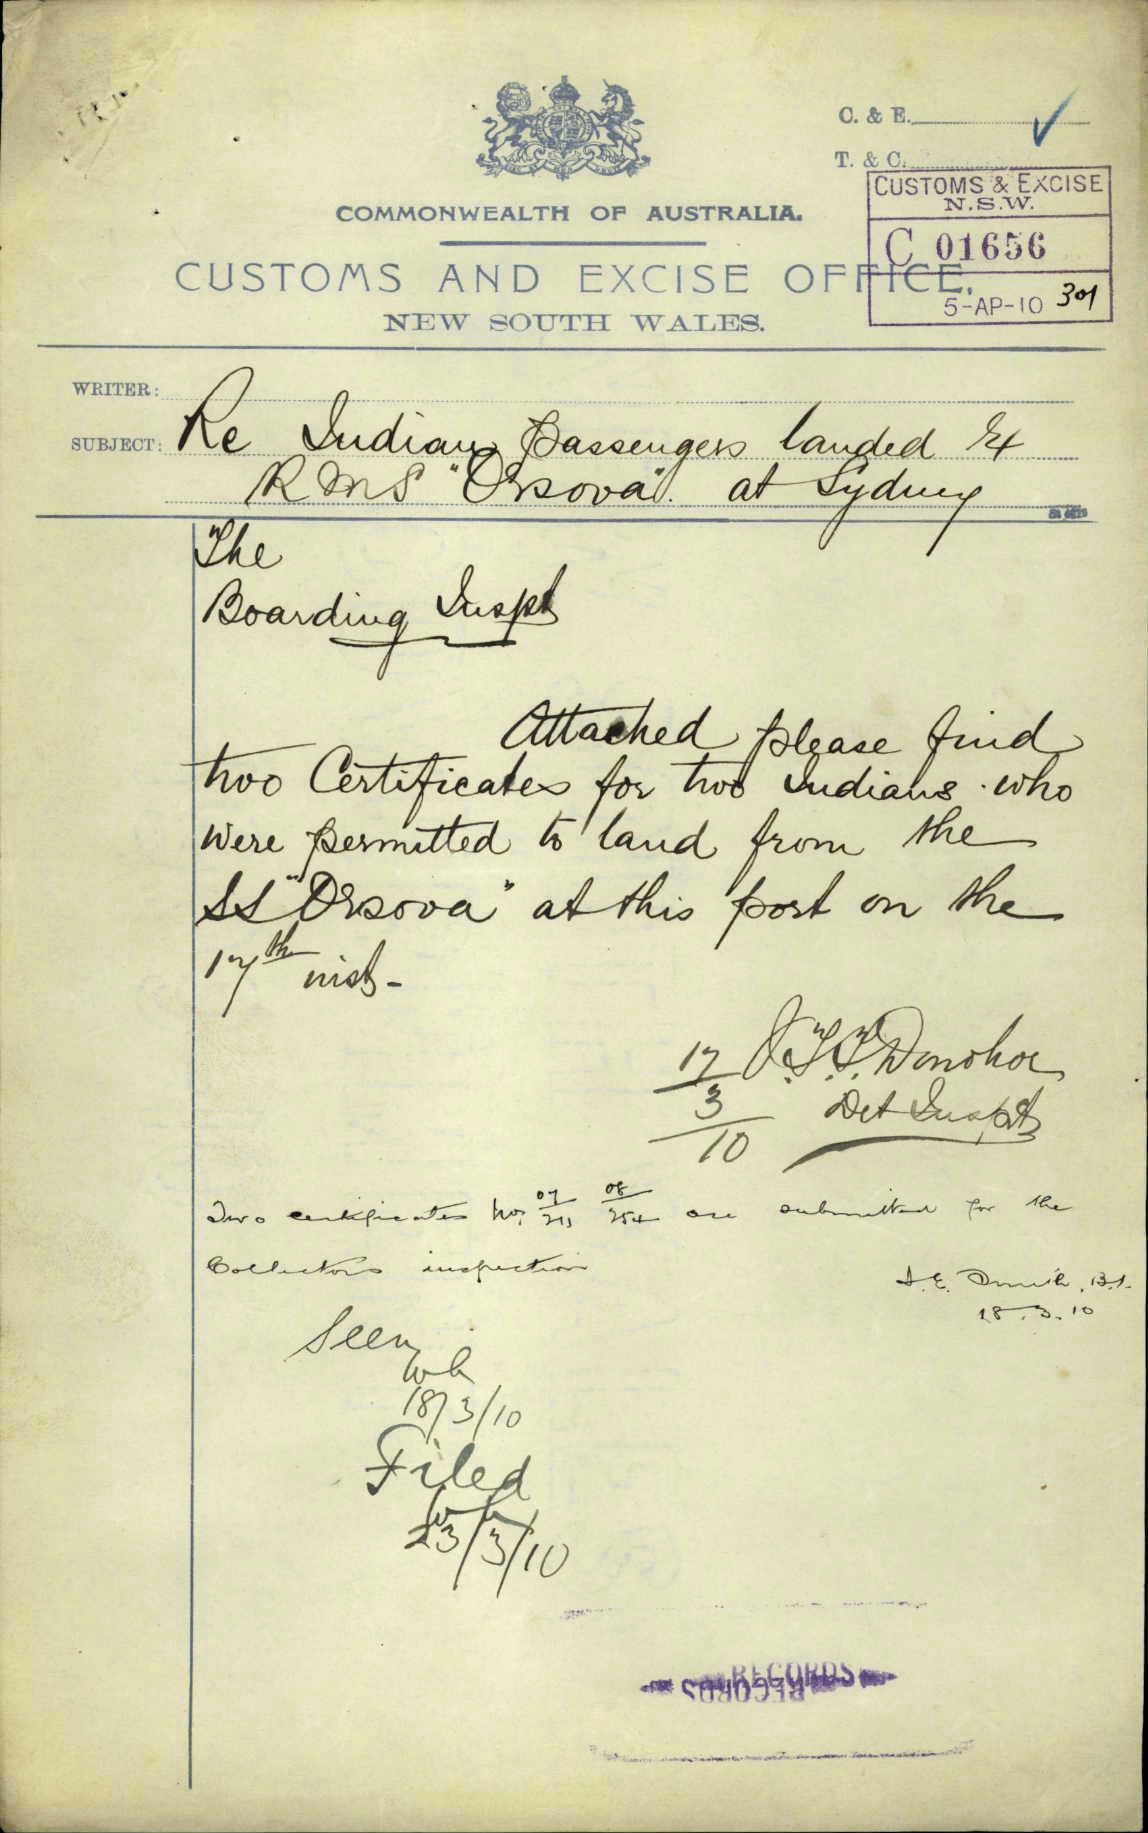 C. & E.
T. & C.
CUSTOMS & EXCISE
N.S.W.
C 01656
5-AP-10 301
COMMONWEALTH OF AUSTRALIA.
CUSTOMS AND EXCISE OFFICE.
NEW SOUTH WALES.
WRITER:
SUBJECT: Re Indian passengers landed Ex
R M S "Orsova". at Sydney
The
Boarding Inspt
Attached please find
two Certificates for two Indians who
were permitted to land from the
SS "Orsova" at this port on the
17th inst-
J.T.T. Donohoe
Det Inspt
17/3/10
Two certificates Nos 07/211 08/254 are submitted for the
Collectors inspection
S.E. Smith. B.I.
18.3.10
Seen
18/3/10
Filed
23/3/10
RECORDS
RECORDS